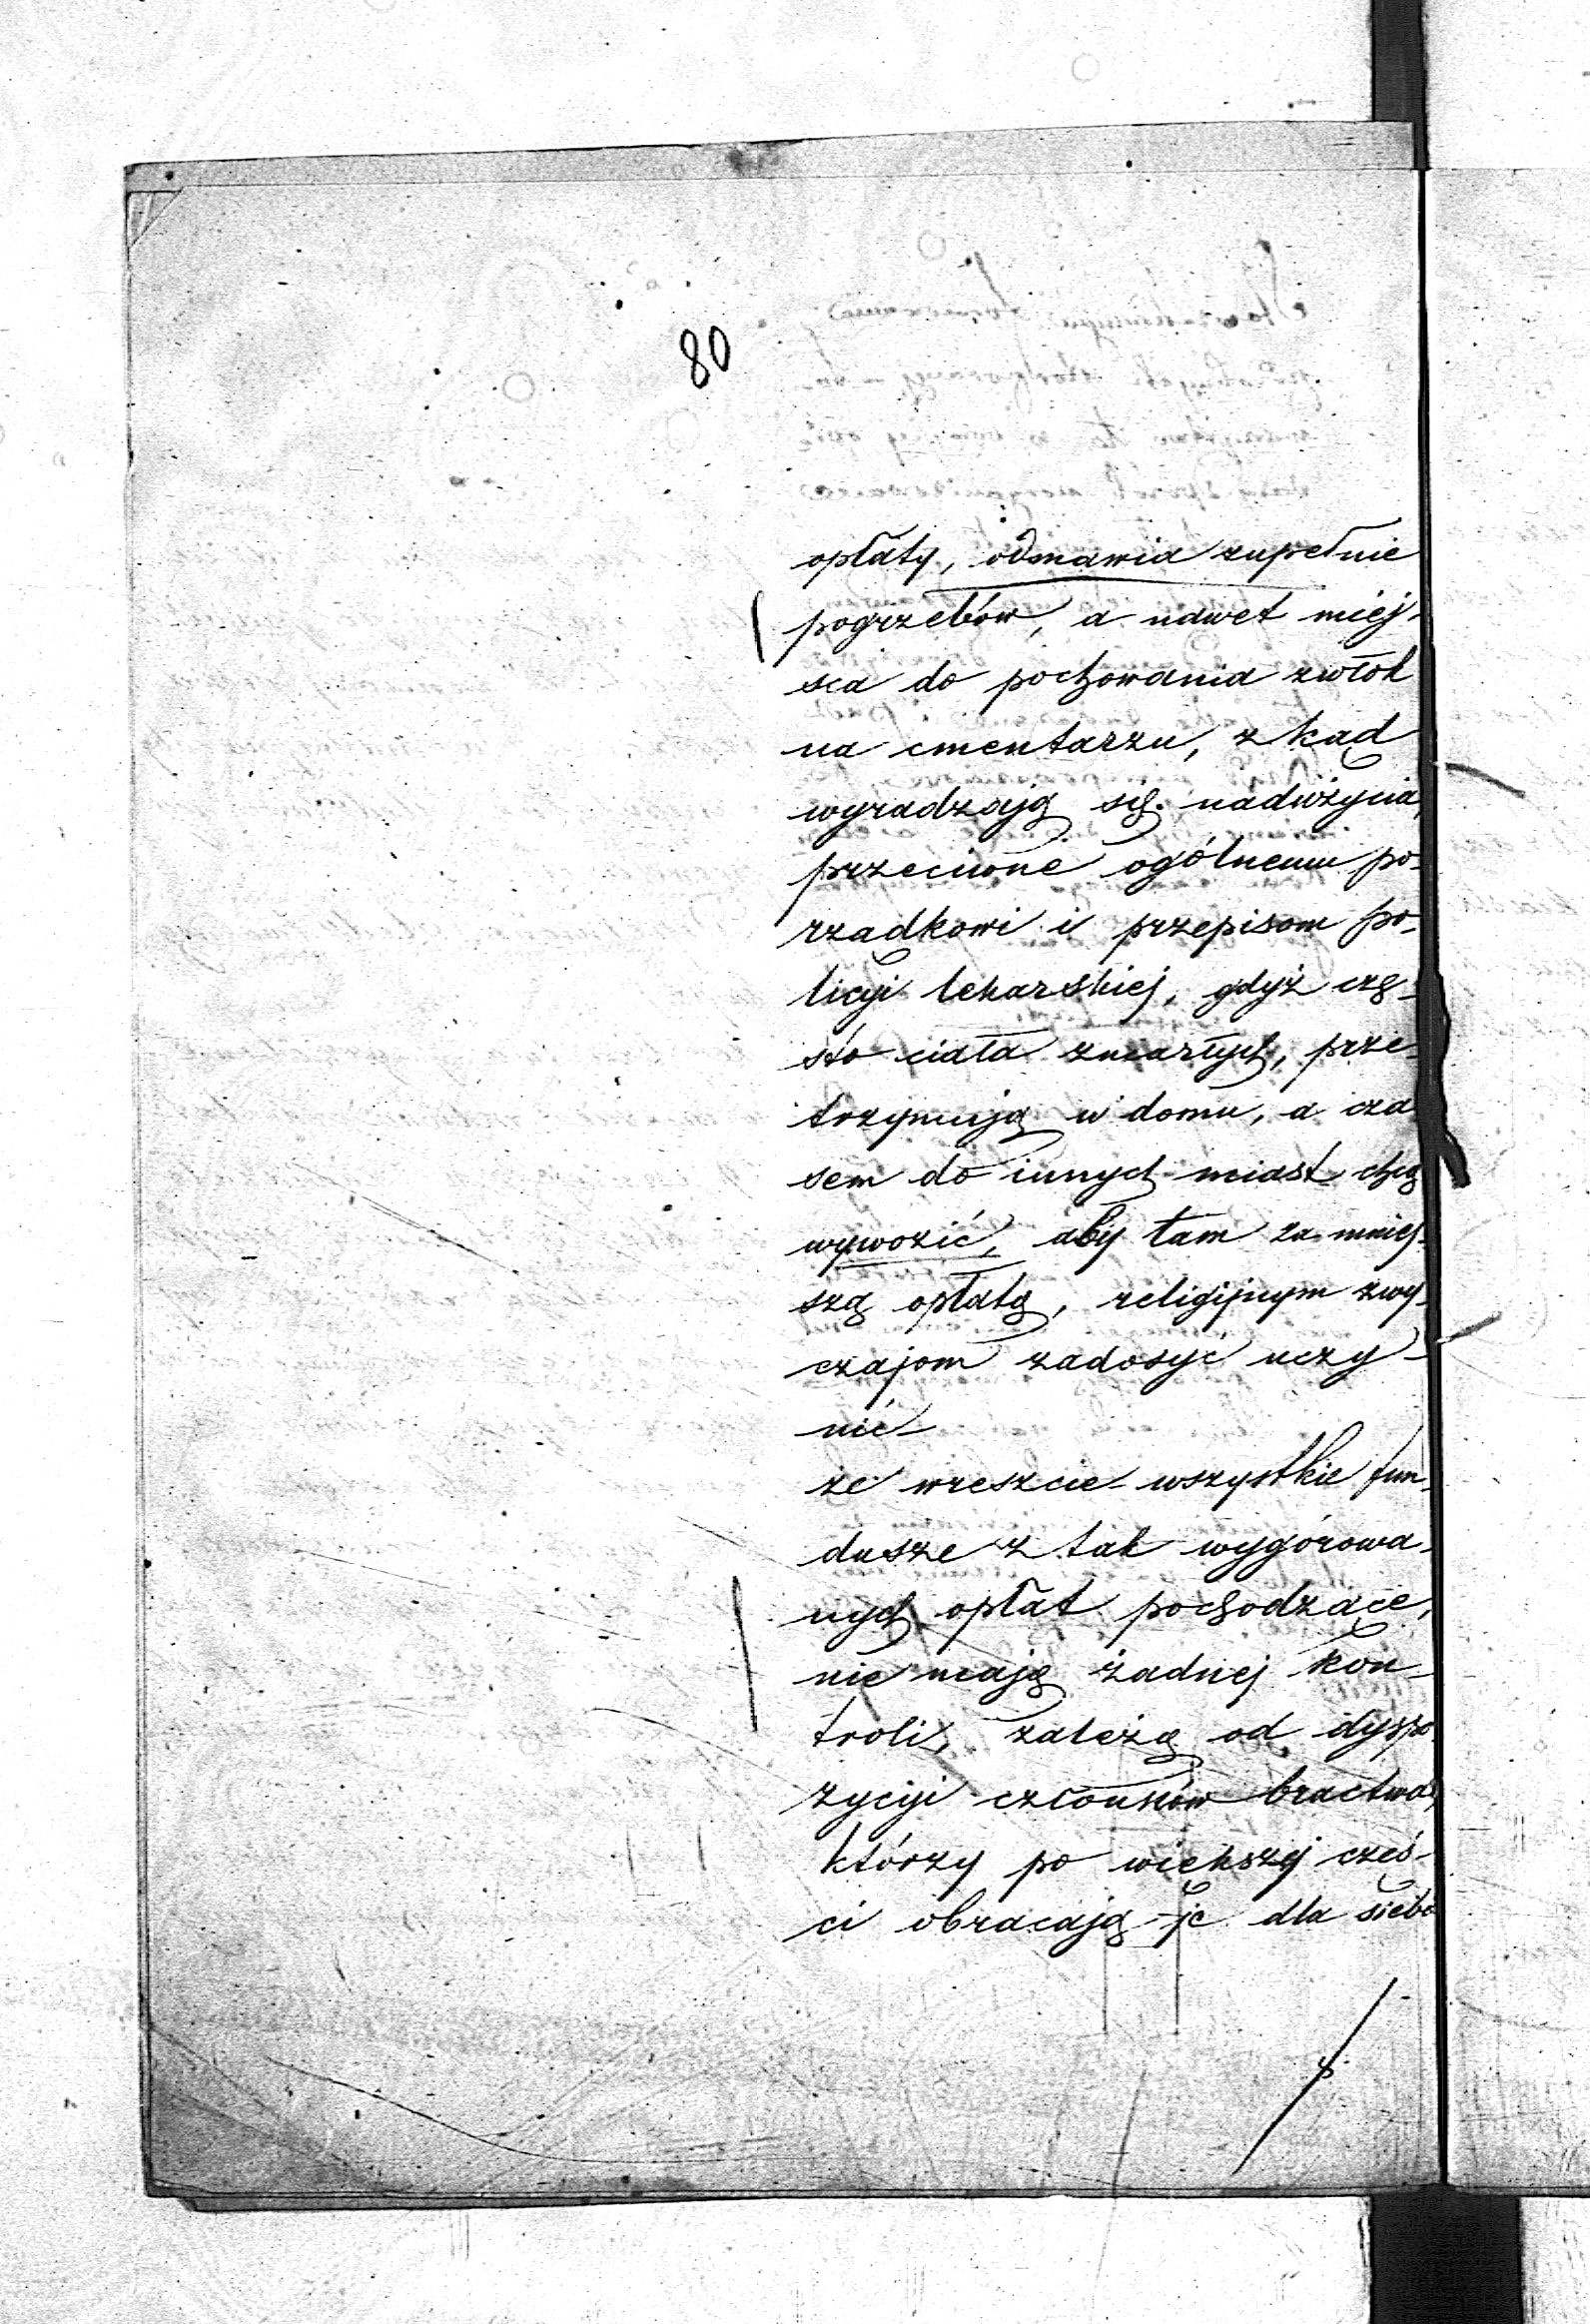 80
opłaty, odmawia zupełnie
pogrzebów, a nawet miej-
sca do pochowania zwłok
na cmentarzu, z kąd
wyradzają się nadużycia,
przeciwne ogólnemu po-
rządkowi i przepisom po-
licyi lekarskiej, gdyż czę-
sto ciała zmarłych, prze-
trzymują w domu, a cza
sem do innych miast chcą
wywozić, aby tam za mniej-
szą opłatą, religijnym zwy-
czajom zadosyć uczy-
nić-
że wreszcie wszystkie fun-
dusze z tak wygórowa-
nych opłat pochodzące,
nie mają żadnej kon-
troli, zależą od dyspo
zycyi członków bractwa,
którzy po większej częś-
ci obracają je dla siebie